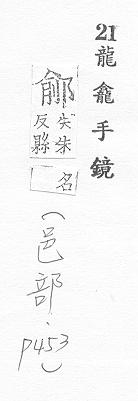 21龍龕手鏡
鄃
失朱
反縣
名
(邑部.p453)